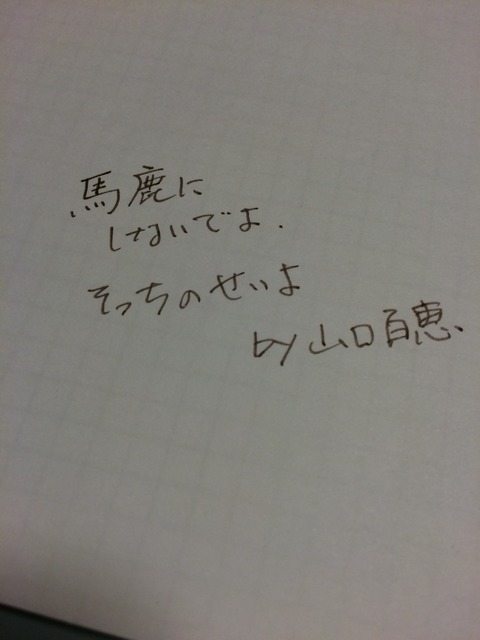 馬鹿に
しないでよ.
そっちのせいよ
by 山口百恵、